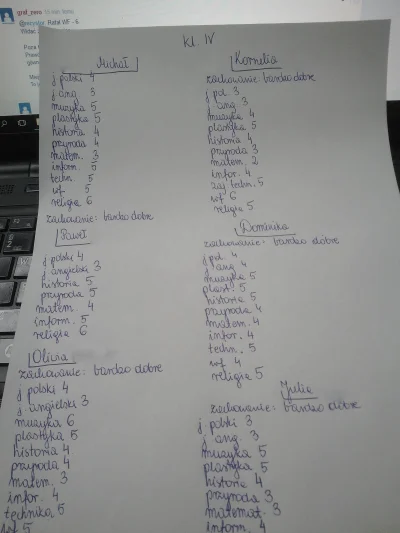 kl. IV
Michał
j. polski 4
j. ang. 5
muzyka 5
plastyka 5
historia 4
przyroda 4
matem. 3
inform. 5
techn. 5
wf 5
religia 6
zachowanie: bardzo dobre
Paweł
j. polski 4
j. angielski 3
historia 5
przyroda 5
matem. 4
inform. 5
religia 6
Oliwia
zachowanie: bardzo dobre
j. polski 4
j. angielski 3
muzyka 6
plastyka 5
historia 4
przyroda 4
matem. 3
infor. 4
technika 5
wf 5
Kornelia
zachowanie: bardzo dobre
j. pol. 3
j. ang. 3
muzyka 4
plastyka 5
historia 4
przyroda 3
matem. 2
infor. 4
zaj. techn. 5
wf 6
religia 5
Dominika
zachowanie: bardzo dobre
j. pol. 4
j. ang. 4
muzyka 5
plast. 5
historia 5
przyroda 4
matem. 4
infor. 4
techn. 5
wf 4
religia 5
Julia
zachowanie: bardzo dobre
j. polski 3
j. ang. 3
muzyka 5
plastyka 5
historia 4
przyroda 3
matemat. 3
inform. 4